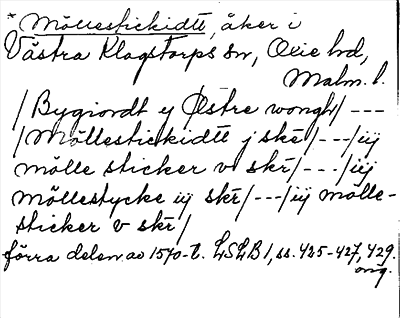 * Möllestickidtt, åker i
Västra Klagstorps sn, Oxie hd,
Malm. l.
/Bygiordt y Østre wongh/ ---
/Möllestickidtt j skr/---/iij
mölle sticker v skr/---/iij
möllestycke iij skr/---/iij mölle-
sticker v skr/
förra delen av 1570-t. LSLB 1, ss. 425-427, 429.
orig.